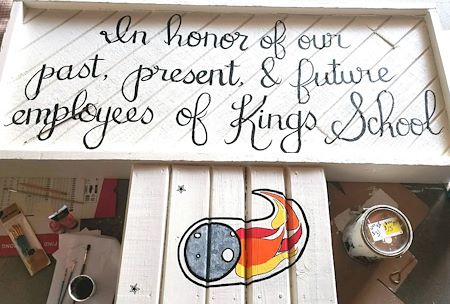 In honor of our
past, present, & future
employees of Kings School